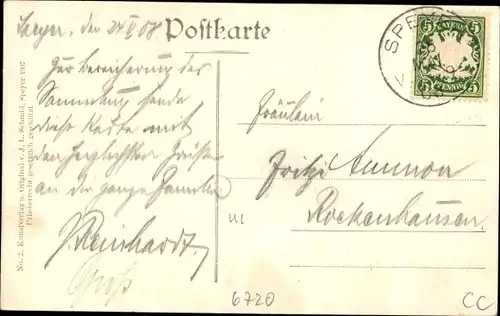 Speyer, den 24 V 08
Postkarte
Zur Bereicherung der
Sammlung sende
diese Karte mit
den herzlichsten Grüßen
an die ganze Familie
J. Reinhardt.
Gruß
Fräulein
Fritzi Ammon
Rockenhausen.
SPEYER
BAYERN
5 5
5 5
PFENNIG
No. 2. Kunstverlag u. Original v. J. L. Schmid, Speyer 1907
Urheberrecht gesetzlich geschützt
6720
CC